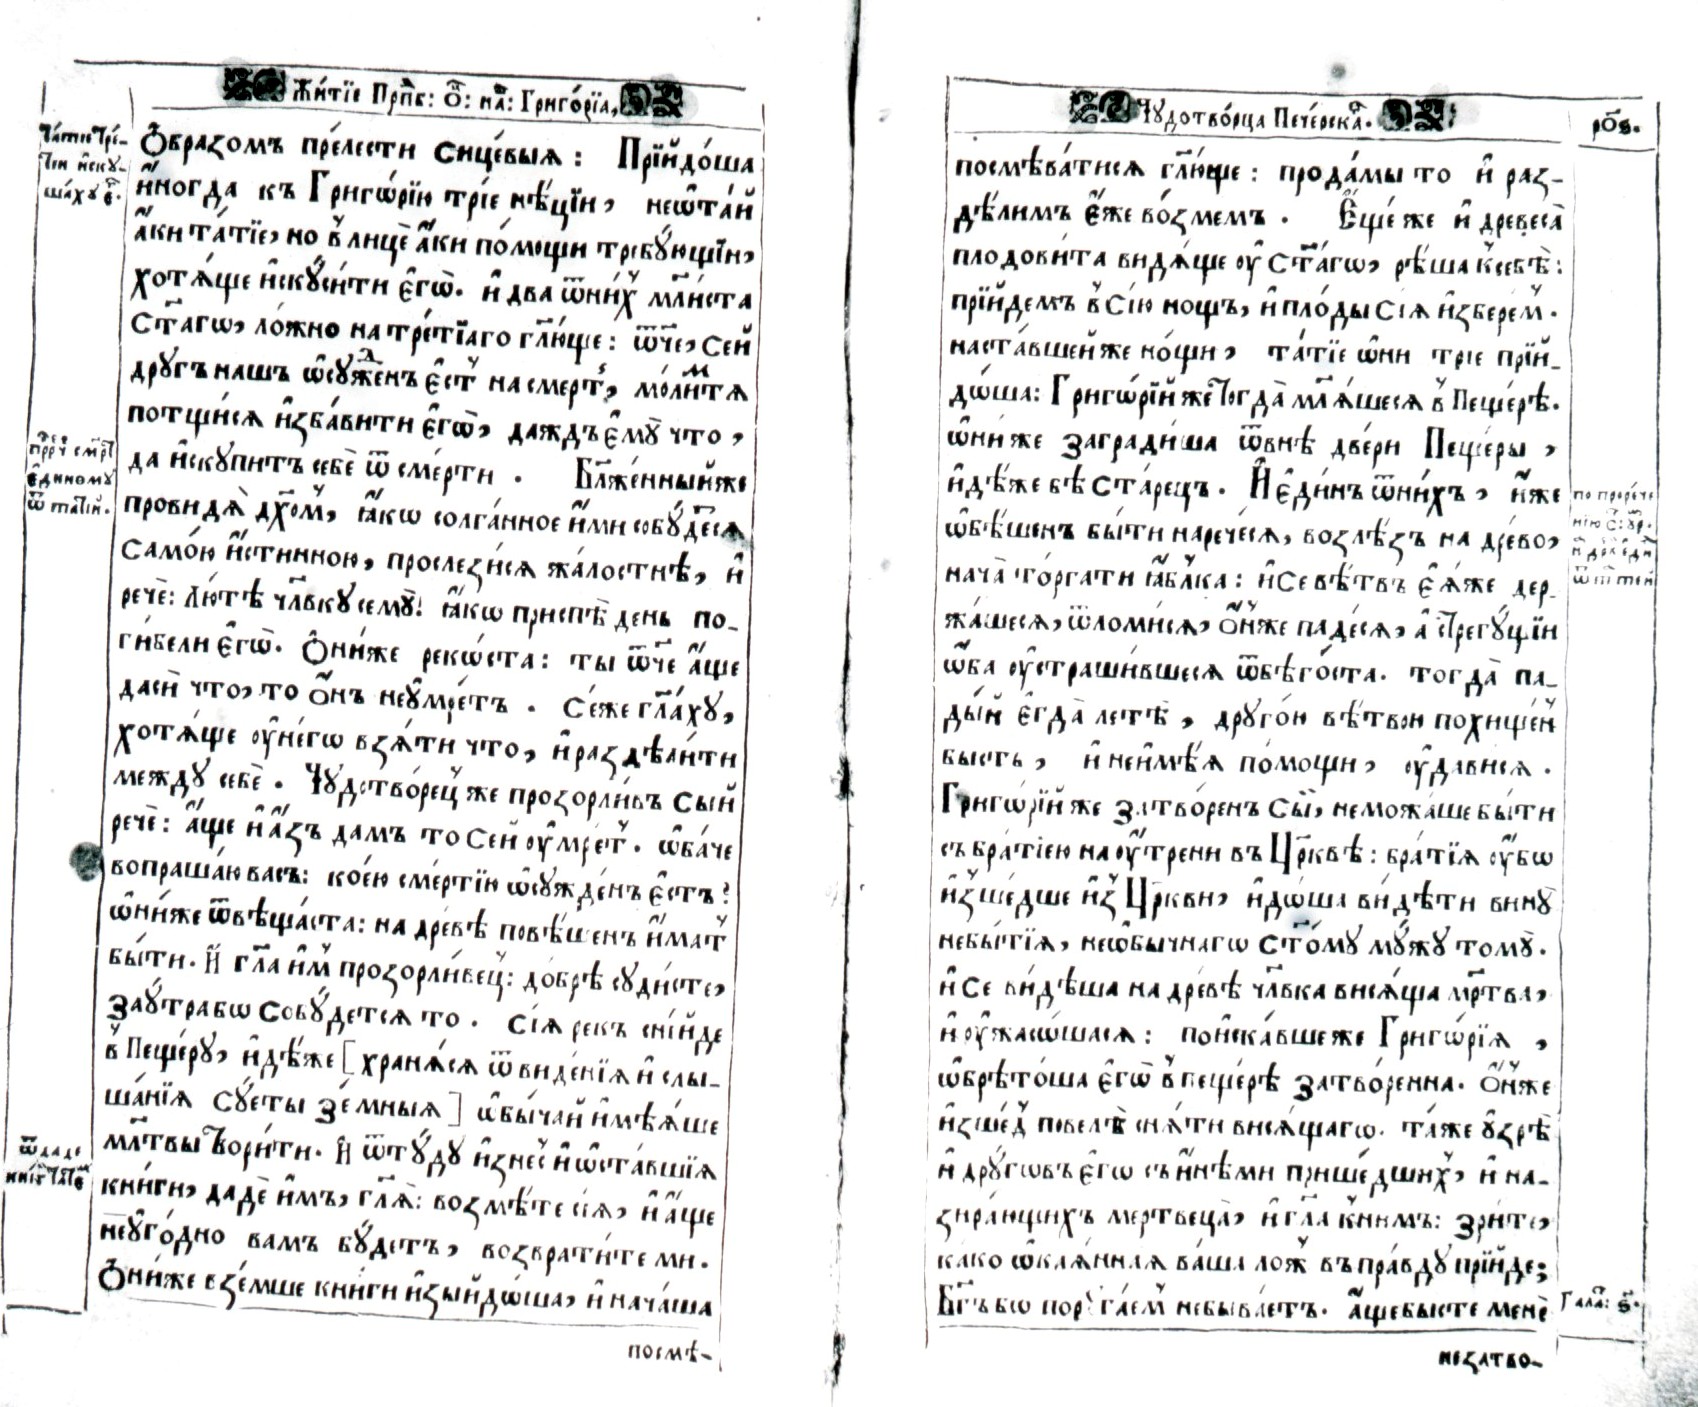 Житїе Прпⷣб: Ѻ҃: на́: Григо́рїа,
Татїе тре́-
тїи и҆скꙋ-
ша́хꙋ є҆г.
Ѻ҆бразомъ пре́лести сице́выѧ : Прїидо́ша
и҆́ногда къ Григѡ́рїю трїе нѣ́цїи, неѡ҆та́й
а҆́ки та́тїе, но в̾ лицѐ а҆́ки по́мощи требꙋ́ющїи,
хотѧ́ще и҆скꙋси́ти є҆гѡ̀. и҆ два ѿни́х̾ мл҃иста
Ст҃а́гѡ, ло́жно на тре́тїаго гл҃юще : ѿче, Сей
дрꙋгъ нашъ ѡ҆сꙋжде́нъ є҆ст̾ на смерт̾, мо́лимтѧ
потщи́сѧ и҆зба́вити є҆гѡ̀, даждъ є҆мꙋ̀ что,
да и҆скꙋпитъ себѐ ѿ сме́рти . Бл҃же́нныйже
провидѧ̀ дх҃ом̾, ꙗ҆́кѡ солга́нное и҆́ми собꙋ́детсѧ
Само́ю и҆́стинною, прослези́сѧ жа́лостнѣ, и҆
речѐ: Лю́тѣ чл҃вкꙋ семꙋ̀! ꙗ҆́кѡ приспѣ̀ день по-
ги́бели є҆гѡ̀. Ѻ҆ни́же реко́ста: ты ѿче а҆́ще
дасѝ что, то ѻ҆́нъ неꙋ҆мре́тъ . Се́же гл҃а́хꙋ,
хотѧ́ще ᲂу҆не́гѡ взѧ́ти что, и҆ раздѣли́ти
междꙋ себѐ . Чꙋдотво́рец̾ же прозорли́въ Сый
речѐ: а҆́ще и҆ а҆́зъ дамъ то Сей ᲂу҆мре́т̾. ѡ҆ба́че
вопраша́ю васъ: ко́ею сме́ртїю ѡ҆сꙋжде́нъ є҆́стъ?
ѡ҆ни́же ѿвѣща́ста: на дре́вѣ повѣ́шенъ и҆́мат̾
бы́ти. И҆ гл҃а и҆́м̾ прозорли́вец̾: до́брѣ сꙋди́сте,
Заꙋ́трабѡ Собꙋ́детсѧ то . Сїѧ рекъ сни́йде
в̾ Пеще́рꙋ, и҆дѣ́же [хранѧ́сѧ ѿ виде́нїѧ и҆ слы-
ша́нїѧ Сꙋ́еты Зе́мныѧ] ѡ҆бы́чай и҆мѣѧ́ше
мл҃твы твори́ти. И҆ ѿтꙋ́дꙋ и҆знес̾ и҆ ѡ҆ста́вшїѧ
кни́ги, дадѐ и҆́мъ, гл҃ѧ: возмѣ́те сїѧ, и҆ а҆́ще
неꙋ҆го́дно вамъ бꙋ́детъ, возврати́те ми.
Ѻ҆ни́же взе́мше кни́ги и҆зыйдо́ша, и҆ нача́ша
прⷪ҇реч сме́рт̾
є҆диномꙋ
ѿ татїй.
ѿдаде
кни́г̾ татⷨе
посмѣ-
Чꙋдотво́рца Пече́рска.
ро҃ѕ.
посмѣва́тисѧ гл҃юще : прода́мы то и҆ раз-
дѣ́лимъ є҆́же во́змемъ . Є҆ще́же и҆ древеса̀
плодови́та видѧ́ще ᲂу҆ Ст҃а́гѡ, рѣ́ша к̾себѣ̀:
прїйдемъ в̾ Сїю нощъ, и҆ пло́ды Сїѧ и҆збере́м̾.
наста́вшейже но́щи, та́тїе ѡ҆ни трїе прїй-
до́ша: Григѡ́рїй же тогда̀ мл҃ѧ́шесѧ в̾ Пеще́рѣ.
ѡ҆ни́же загради́ша ѿвнѣ̀ две́ри Пеще́ры,
и҆дѣ́же бѣ Ста́рецъ. И҆ є҆ди́нъ ѿни́хъ, и҆́же
ѡ҆бѣ́шенъ бы́ти нарече́сѧ, возлѣ́зъ на дре́во,
нача̀ то́ргати ꙗ҆́блка: и҆ Се вѣ́твъ є҆ѧ́же дер-
жа́шесѧ, ѿломи́сѧ, ѻ҆́нже паде́сѧ, а҆ стрегꙋ́щїи
ѡ҆́ба ᲂу҆страши́вшесѧ ѿбѣго́ста. тогда̀ па-
ды́й є҆гда̀ летѣ̀, дрꙋго́ю вѣ́твою похище́н̾
бысть, и҆ неи҆мѣ́ѧ по́мощи, ᲂу҆дави́сѧ .
Григѡ́рїй же затво́ренъ Сы́й, неможа́ше бы́ти
съ бра́тїею на ᲂу҆́трени въ Цр҃квѣ : бра́тїѧ ᲂу҆́бѡ
и҆з̾ше́дше и҆з̾ Цр҃кви, и҆до́ша ви́дѣти винꙋ̀
небы́тїѧ, неѡ҆бычнагѡ ст҃о́мꙋ мꙋ́жꙋ томꙋ̀.
и҆ се ви́дѣша на дре́вѣ чл҃вка висѧ́ща мр҃тва,
и҆ ᲂу҆жасо́шасѧ : пои҆ска́вшеже Григѡ́рїѧ ,
ѡ҆брѣто́ша є҆гѡ̀ в̾ пеще́рѣ затво́ренна. Ѻ҆́нже
и҆зше́д̾ повелѣ̀ снѧ́ти висѧ́щагѡ. та́же ᲂу҆зрѣ̀
и҆ дрꙋ́говъ є҆гѡ съ и҆нѣ́ми прише́дших̾, и҆ на-
зира́ющихъ мертвеца̀, и҆ гл҃а к̾нимъ: Зри́те,
ка́ко ѡ҆каѧ́ннаѧ ва́ша лож̾ въ пра́вдꙋ прїйде;
Бг҃ъ бѡ порꙋга́ем̾ небыва́етъ. а҆́щебысте менѐ
по проре́че
нїю
Гала: ѕ҃.
незатво-